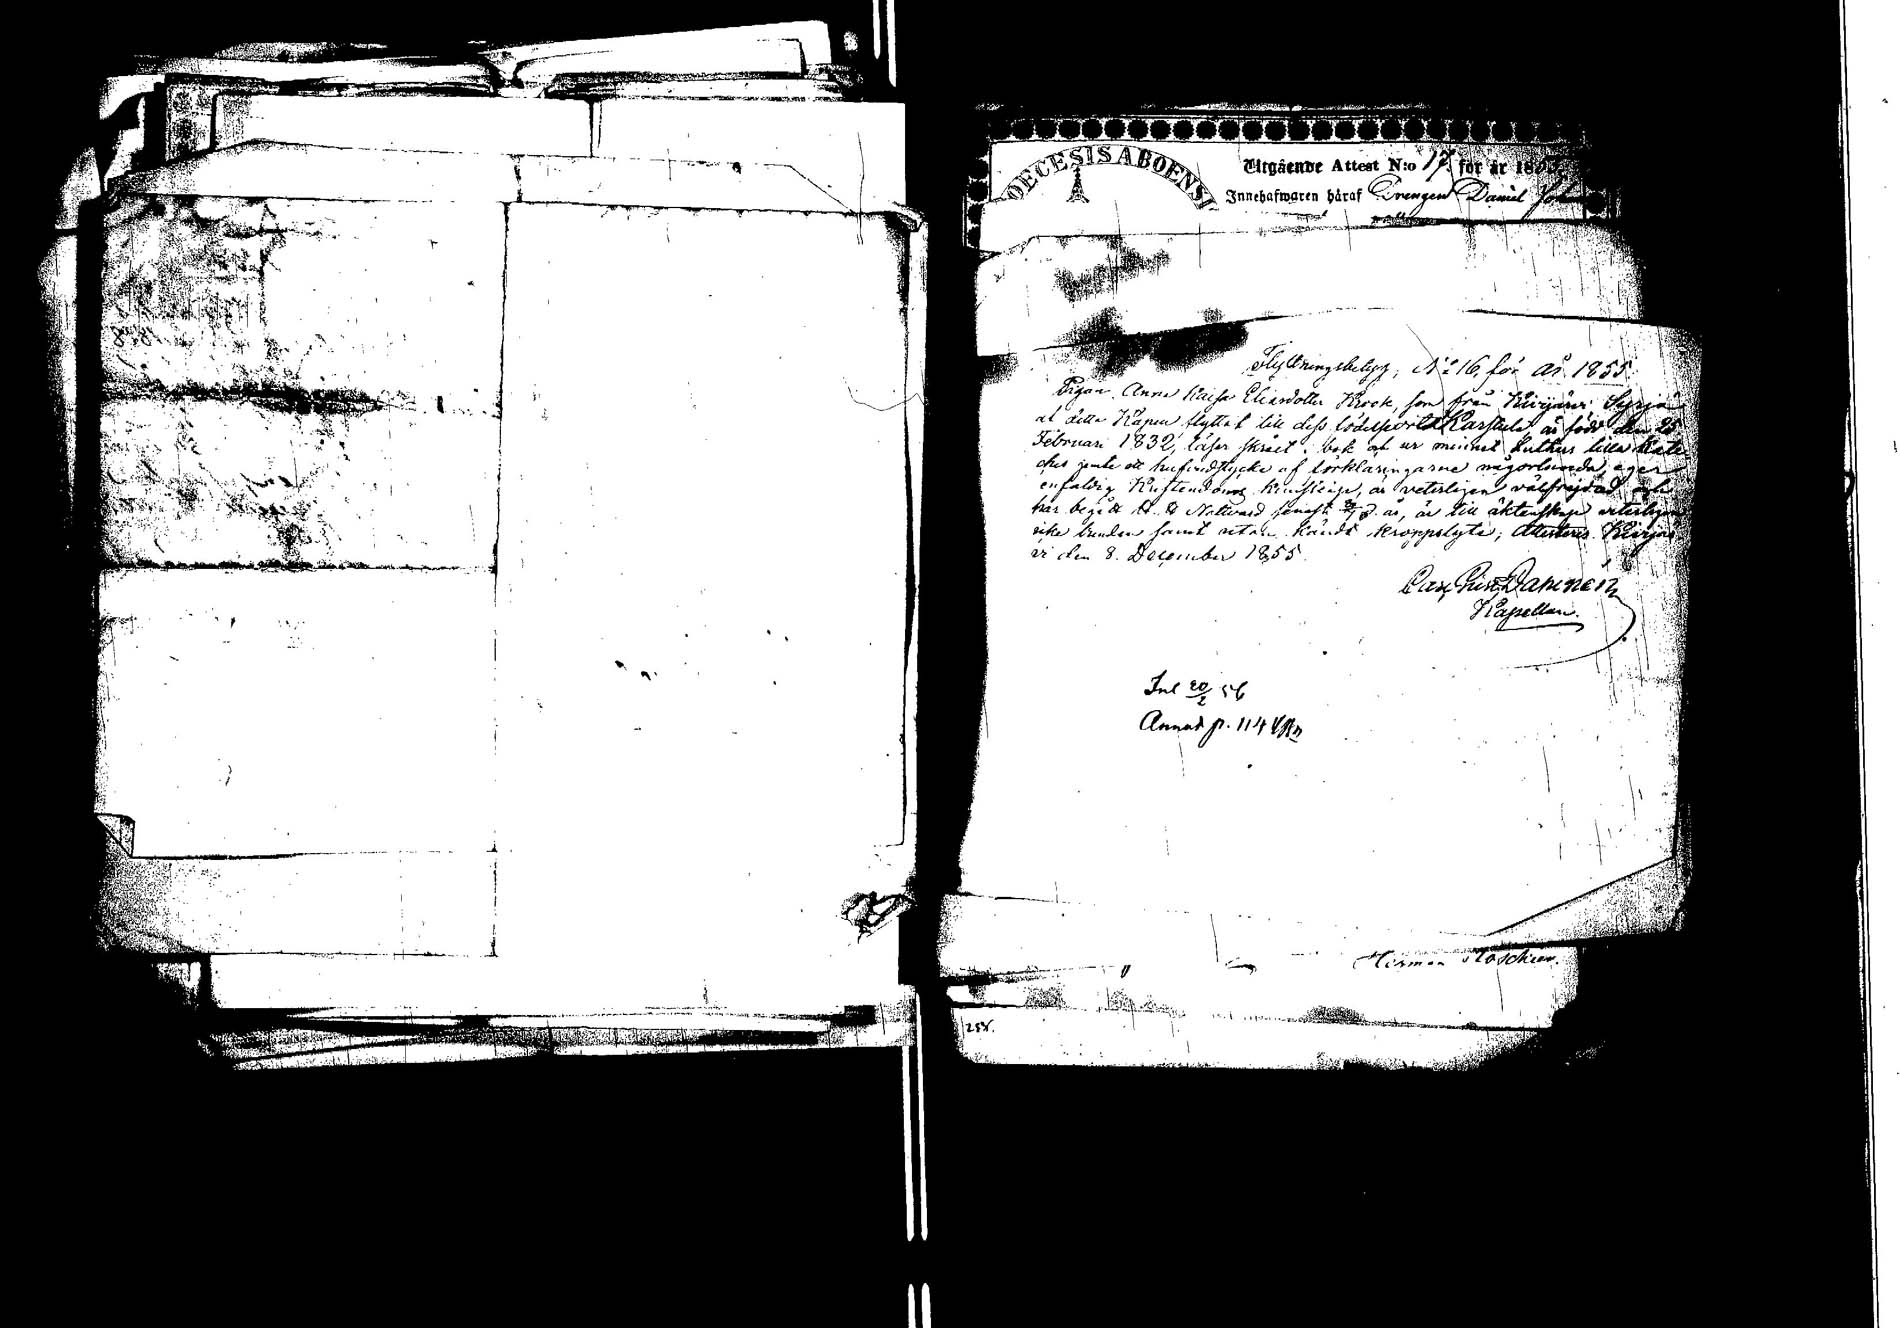 DIOECESIS ABOENSI
Utgående Attest N:o 17. för år 185
Innehafwaren häraf Drengen Daniel Joh
Flyttningsbetyg, N:o 16, för år 1855.
Pigan Anna Kaisa Eliasdotter Krook, som från Keurjärvi
at detta Kapell flyttat till dess födelseort Karstula, är född den 25
Februari 1832, läser skrift i bok och ur minnet Luthers lilla Kate
ches jemte ett hufvudstycke af förklaringarne någorlunda, eger
enfaldig Kristendoms kunskap, är veterligen välfrejdad och
har begått H. H. Nattvard senast år, är till äktenskap veterligen
icke bunden samt utan kända kroppslyte; Attesteras
vi den 8. December 1855.
Dannén
Kapellan.
Inl 20/2 56
Annot p. 114
Herman Roschier.
258.